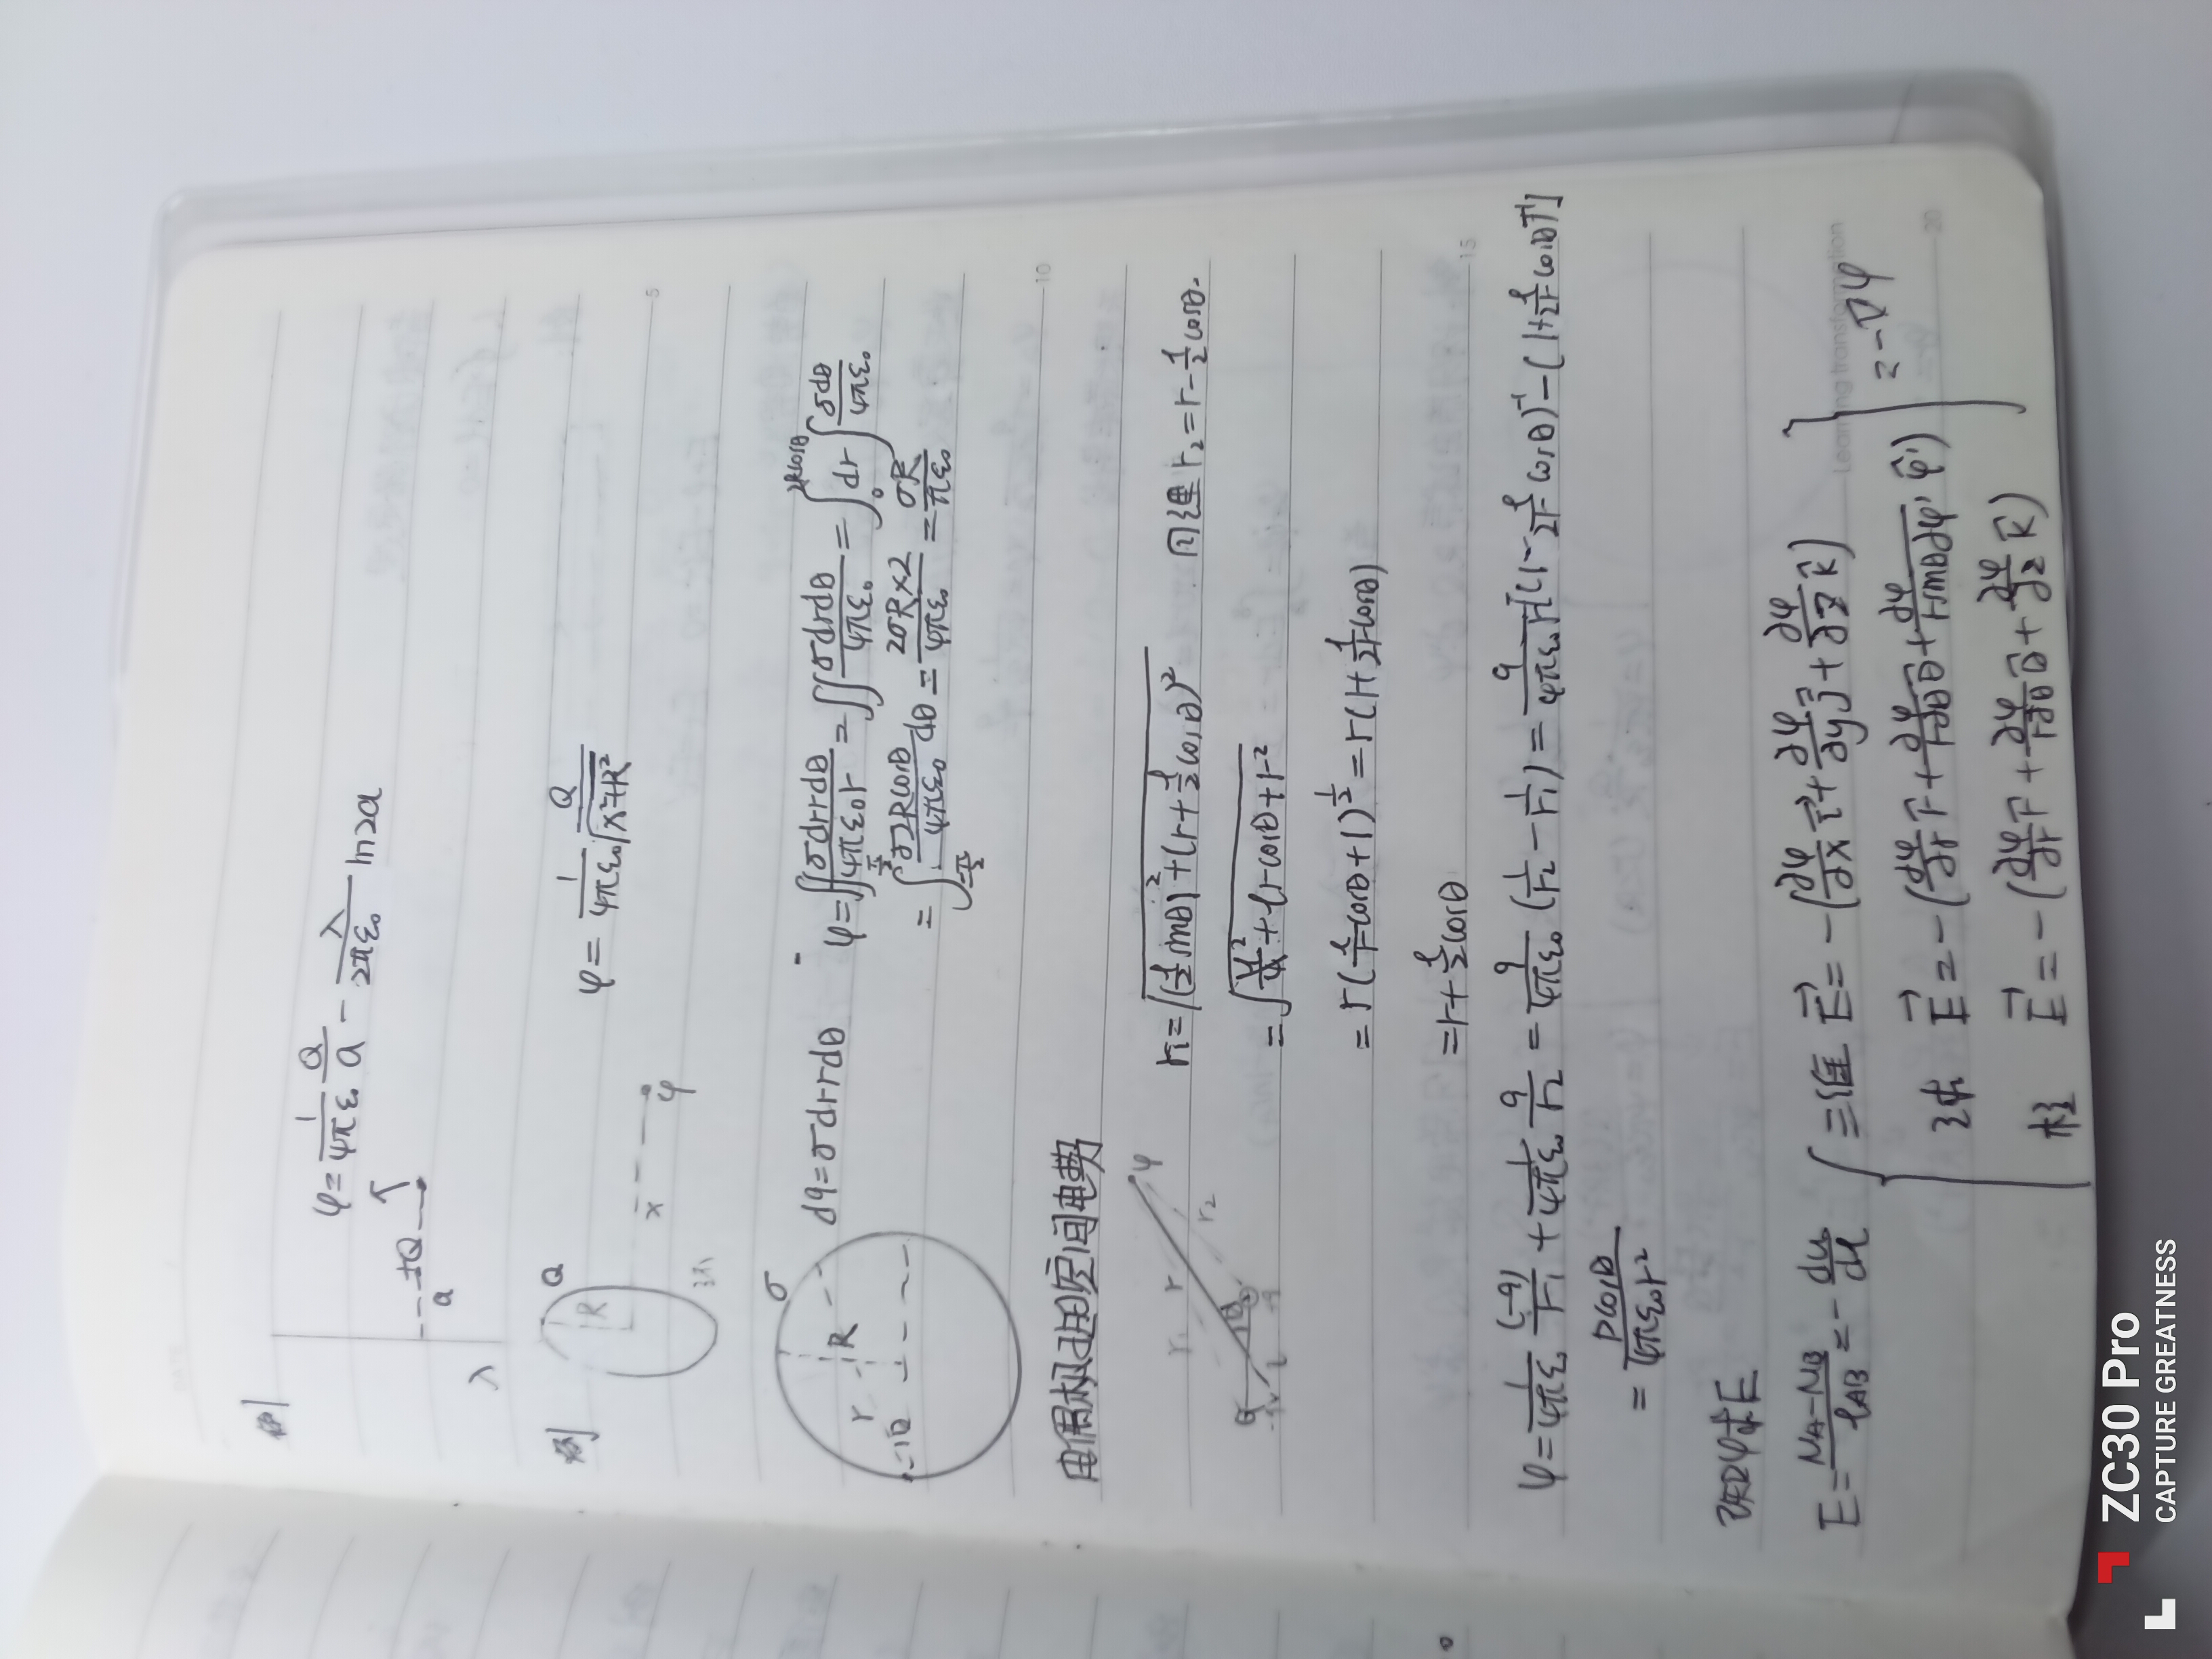 例
φ=1/4πε₀ Q/a - λ/2πε₀ ln2a
+Q
a
λ
例
Q
R
x
φ
φ= 1/4πε₀ Q/√x²+R²
σ
R
r
θ
dq=σdrrdθ
φ=∬σdrrdθ/4πε₀r =∬σdrdθ/4πε₀ =∫₀^2Rcosθ dr∫σdθ/4πε₀
=∫_-π/2^π/2 σ2Rcosθ/4πε₀ dθ = 2σR×2/4πε₀ = σR/πε₀
电偶极子电空间电势
φ
r₁
r
r₂
θ
r₁=√(l/2 sinθ)²+(r+l/2 cosθ)² 同理 r₂=r-l/2cosθ.
=√l²/4+lrcosθ+r²
=r(l/r cosθ+1)^½=r(1+l/2r cosθ)
=r+l/2cosθ
φ=1/4πε₀ (-q)/r₁ + 1/4πε₀ q/r₂ = q/4πε₀ (1/r₂ - 1/r₁) = q/4πε₀r[(1-l/2r cosθ)⁻¹-(1+l/2r cosθ)⁻¹]
= pcosθ/4πε₀r²
已知φ求E
E= uA-uB/lAB = - du/dl
三维 E⃗=-(∂φ/∂x i⃗+∂φ/∂y j⃗+∂φ/∂z k⃗)
球 E⃗=-(∂φ/∂r r⃗+∂φ/r∂θ θ⃗+∂φ/rsinθ∂φ' φ⃗')
柱 E⃗=-(∂φ/∂r r⃗+∂φ/r∂θ θ⃗+∂φ/∂z k⃗)
=-∇φ
5
10
15
20
Learning transformation
ZC30 Pro
CAPTURE GREATNESS